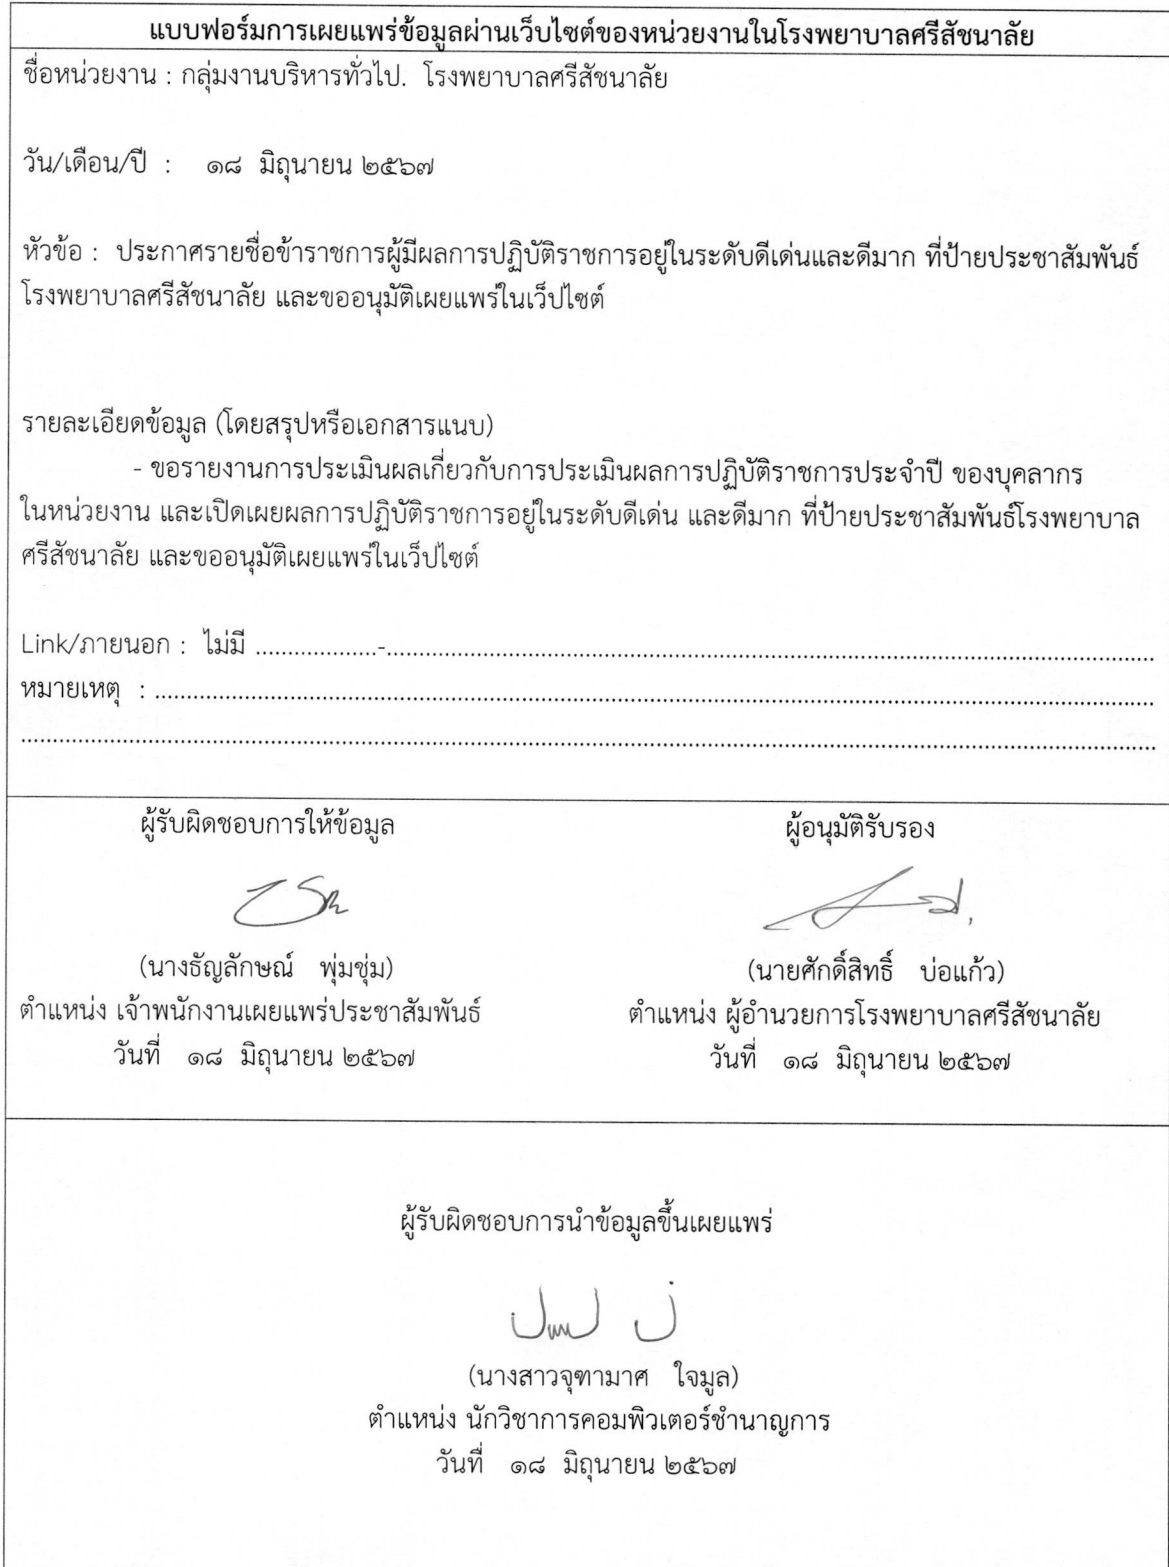 แบบฟอร์มการเผยแพร่ข้อมูลผ่านเว็บไซต์ของหน่วยงานในโรงพยาบาลศรีสัชนาลัย
ชื่อหน่วยงาน : กลุ่มงานบริหารทั่วไป. โรงพยาบาลศรีสัชนาลัย
วัน/เดือน/ปี : ๑๘ มิถุนายน ๒๕๖๗
หัวข้อ : ประกาศรายชื่อข้าราชการผู้มีผลการปฏิบัติราชการอยู่ในระดับดีเด่นและดีมาก ที่ป้ายประชาสัมพันธ์
โรงพยาบาลศรีสัชนาลัย และขออนุมัติเผยแพร่ในเว็ปไซต์
รายละเอียดข้อมูล (โดยสรุปหรือเอกสารแนบ)
- ขอรายงานการประเมินผลเกี่ยวกับการประเมินผลการปฏิบัติราชการประจำปี ของบุคลากร
ในหน่วยงาน และเปิดเผยผลการปฏิบัติราชการอยู่ในระดับดีเด่น และดีมาก ที่ป้ายประชาสัมพันธ์โรงพยาบาล
ศรีสัชนาลัย และขออนุมัติเผยแพร่ในเว็ปไซต์
Link/ภายนอก : ไม่มี ...................-........................................................................................................................
หมายเหตุ : ............................................................................................................................................................
.................................................................................................................................................................................
ผู้รับผิดชอบการให้ข้อมูล ผู้อนุมัติรับรอง
(นางธัญลักษณ์ พุ่มชุ่ม) (นายศักดิ์สิทธิ์ บ่อแก้ว)
ตำแหน่ง เจ้าพนักงานเผยแพร่ประชาสัมพันธ์ ตำแหน่ง ผู้อำนวยการโรงพยาบาลศรีสัชนาลัย
วันที่ ๑๘ มิถุนายน ๒๕๖๗ วันที่ ๑๘ มิถุนายน ๒๕๖๗
ผู้รับผิดชอบการนำข้อมูลขึ้นเผยแพร่
(นางสาวจุฑามาศ ใจมูล)
ตำแหน่ง นักวิชาการคอมพิวเตอร์ชำนาญการ
วันที่ ๑๘ มิถุนายน ๒๕๖๗